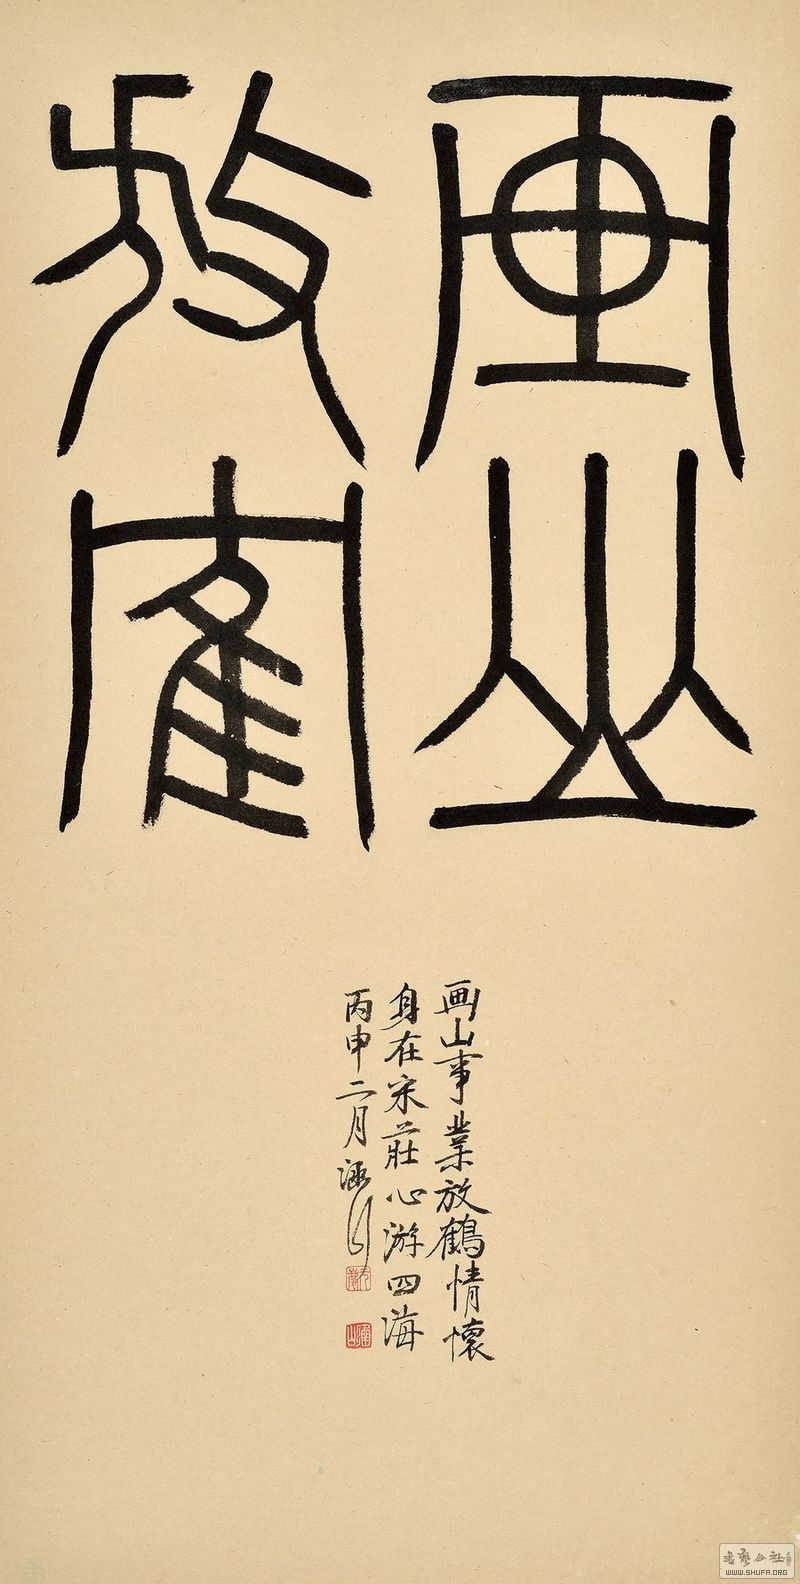 画山
放鹤
画山事業放鶴情懷
身在宋莊心游四海
丙申二月涵
WWW.SHUFA.ORG